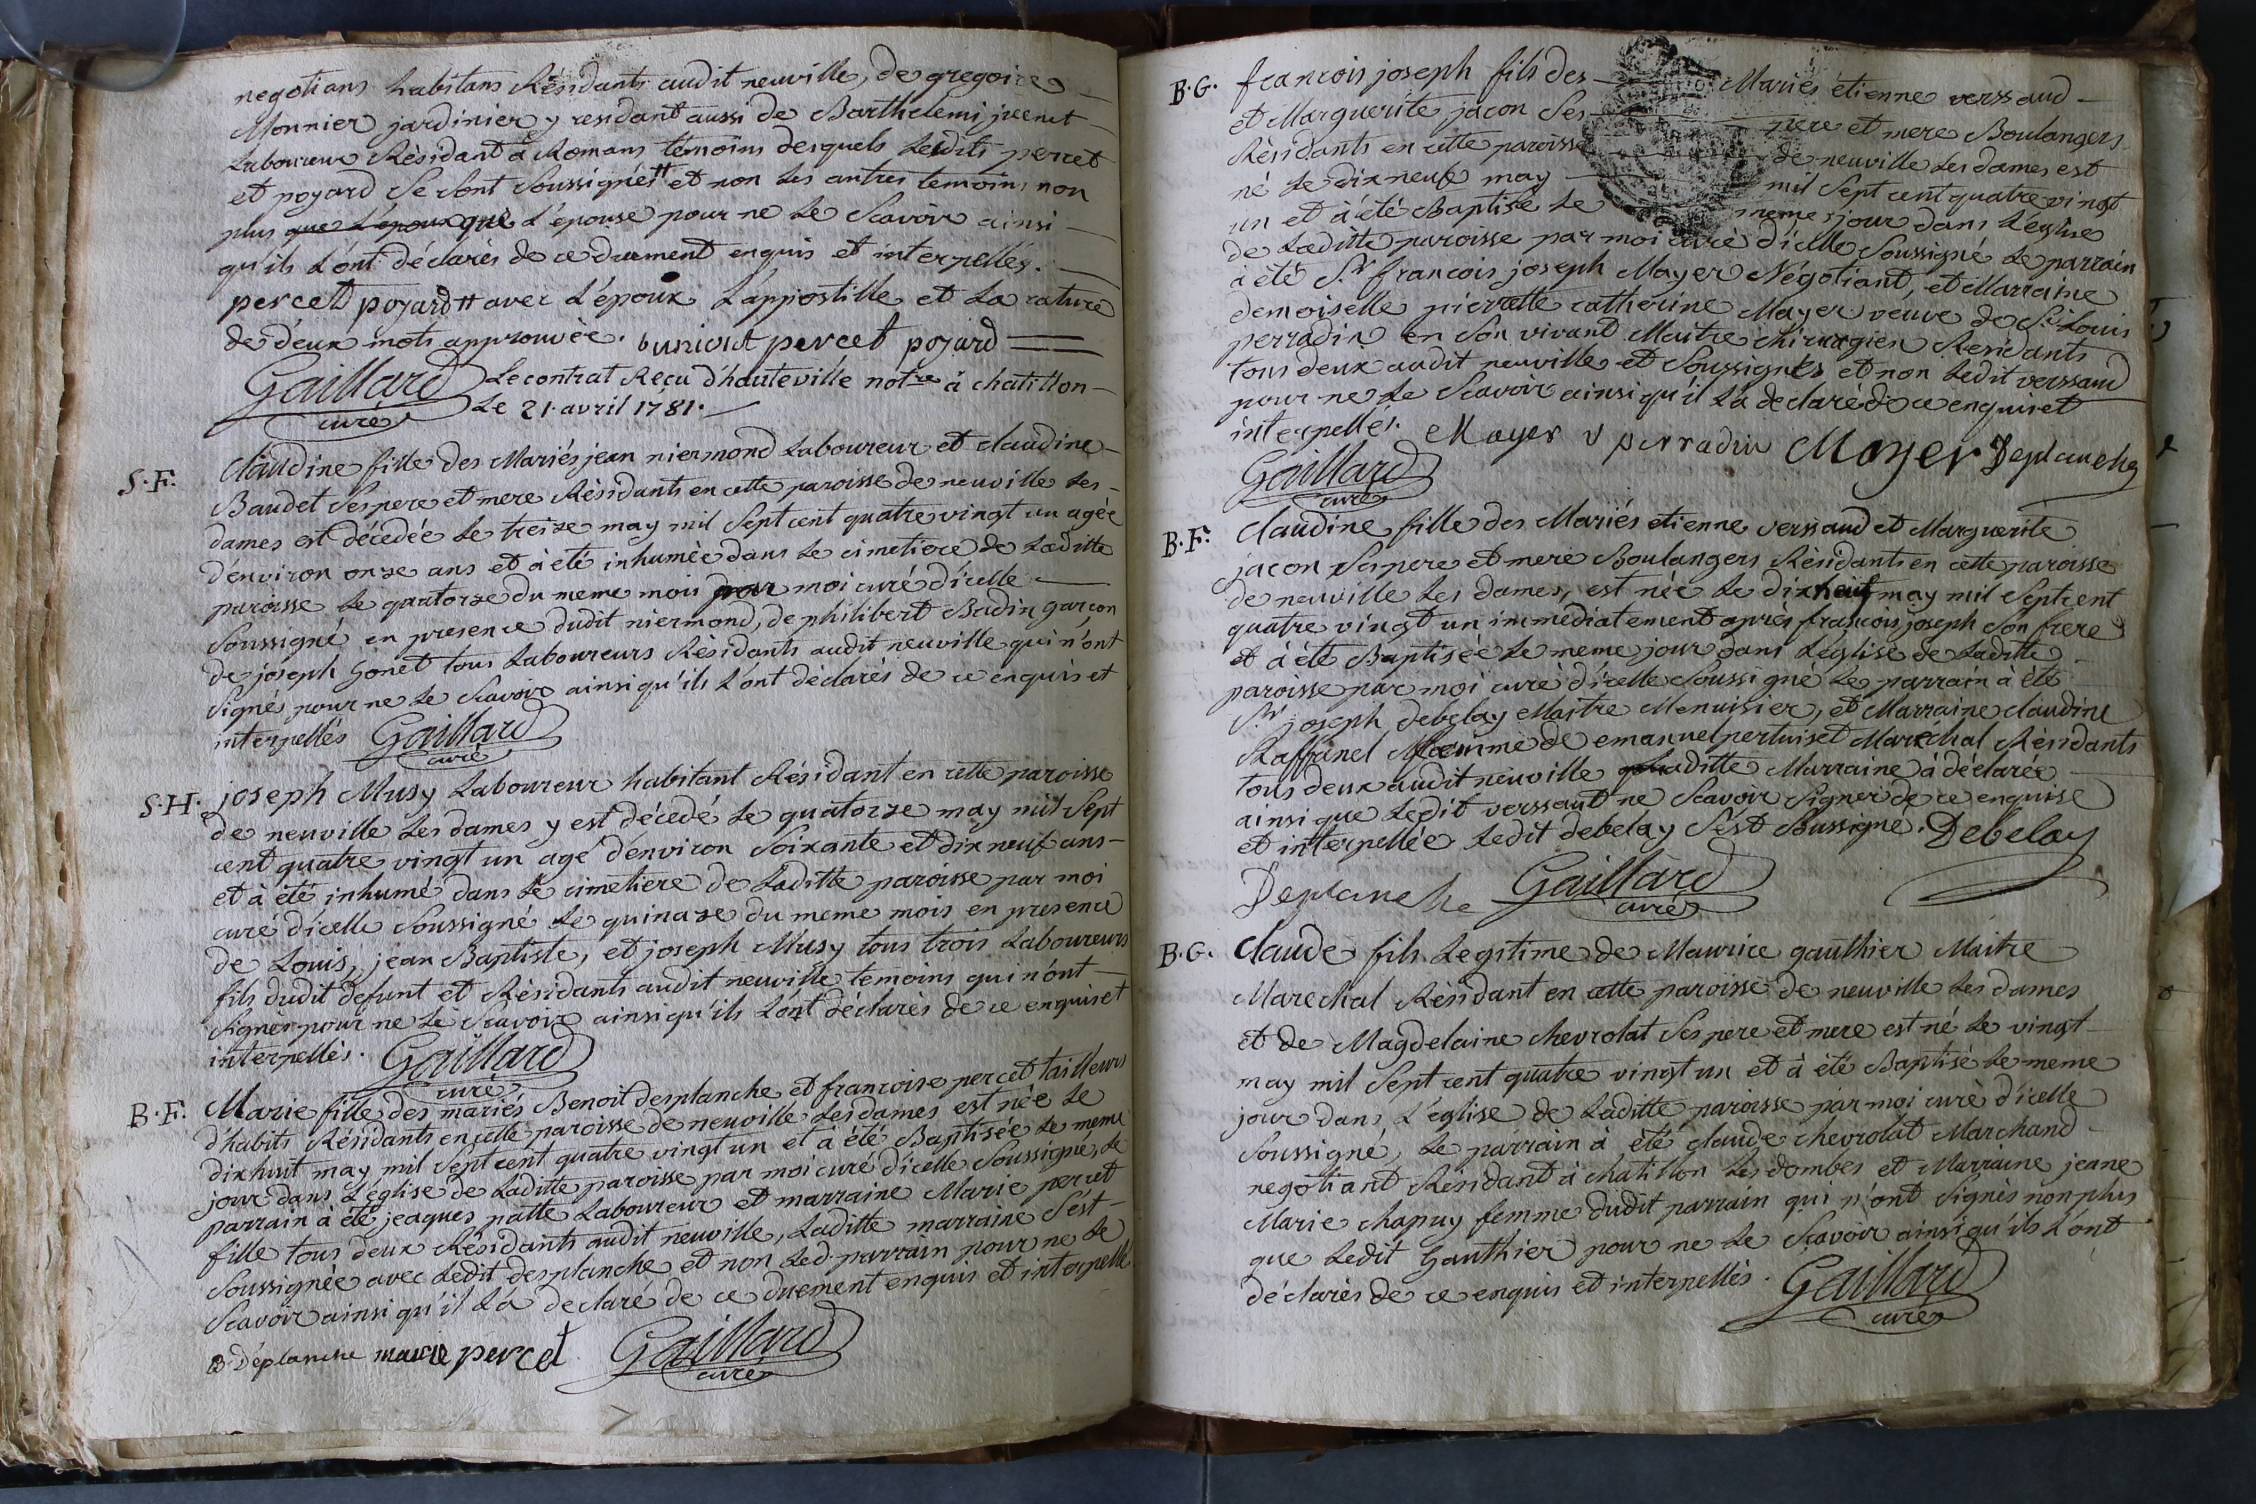 negotians habitans Résidants audit neuville, de gregoire
Monnier jardinier y residant aussi de Barthelemi
Laboureur Résidant à Romans témoins desquels lesdits percet
et poyard se sont soussignés # et non les autres temoins non
plus que l'epoux que l'épouse pour ne le Scavoir ainsi
qu'ils l'ont déclarés de ce duement enquis et interpellés.
percet poyard # avec l'époux l'appostille et la rature
des deux mots approuvée. percet pojard
Gaillard curé
Le contrat Reçu d'hauteville notre à chatillon
Le 21 avril 1781.
S.F. Claudine fille des Mariés jean niermond Laboureur et claudine
Baudet Ses pere et mere Résidants en cette paroisse de neuville les
dames est décedée le treize may mil Sept cent quatre vingt un agée
d'environ onze ans et à été inhumée dans le cimetiere de Laditte
paroisse le quatorze du meme mois par moi curé d'icelle
Soussigné en presence dudit niermond, de philibert Badin garçon
de joseph Gonet tous Laboureurs Résidants audit neuville qui n'ont
Signés pour ne le Scavoir ainsi qu'ils l'ont déclarés de ce enquis et
interpellés Gaillard
curé
S.H. joseph Musy Laboureur habitant Résidant en cette paroisse
de neuville les dames y est décedé le quatorze may mil Sept
cent quatre vingt un agé d'environ Soixante et dix neuf ans
et à été inhumé dans le cimetiere de Laditte paroisse par moi
curé d'icelle Soussigné le quinzze du meme mois en presence
de Louis, jean Baptiste, et joseph Musy tous trois Laboureurs
fils dudit defunt et Résidants audit neuville temoins qui n'ont
Signés pour ne le Scavoir ainsi qu'ils l'ont déclarés de ce enquis et
interpellés. Gaillard
curé
B.F. Marie fille des mariés Benoit desplanche et francoise percet tailleurs
d'habits Résidants en cette paroisse de neuville Les dames est née le
dixhuit may mil Sept cent quatre vingt un et à été Baptisée le meme
jour dans L'église de Laditte paroisse par moi curé d'icelle Soussigné, le
parrain à été jeaques patte Laboureur et marraine Marie percet
fille tous deux Résidants audit neuville, Laditte marraine S'est
Soussignée avec ledit desplanche et non led. parrain pour ne le
Scavoir ainsi qu'il l'a declaré de ce duement enquis et interpellé
B déplanche marie percet Gaillard
curé
B.G. francois joseph fils des Mariés étienne verssaud
et Marguerite jacon Ses pere et mere Boulangers
Résidants en cette paroisse de neuville les dames est
né le dixneuf may mil Sept cent quatre vingt
un et à été Baptisé le meme jour dans L'église
de Laditte paroisse par moi curé d'icelle Soussigné le parrain
à été Sr francois joseph Mayer Négotiant, et Marraine
demoiselle pierrette catherine Mayer veuve de Sr Louis
perradin en Son vivant Maitre chirurgien Residants
tous deux audit neuville et Soussignés et non ledit verssaud
pour ne le Scavoir ainsi qu'il l'a declaré de ce enquis et
interpellé. Mayer v perradin Mayer Deplanche
Gaillard
curé
B.F. Claudine fille des Mariés etienne verssaud et Marguerite
jacon Ses pere et mere Boulangers Résidants en cette paroisse
de neuville les dames, est née le dixneuf may mil Sept cent
quatre vingt un immédiatement après francois joseph Son frere
et à été Baptisée le meme jour dans L'église de Laditte
paroisse par moi curé d'icelle Soussigné le parrain à été
Sr joseph debelay Maitre Menuisier, et Marraine claudine
Raffanel femme de emanuel pertuiset Maréchal Résidants
tous deux audit neuville Laditte Marraine à déclarée
ainsi que ledit verssaud ne Scavoir Signer de ce enquise
et interpellée ledit debelay S'est Soussigné. Debelay
Deplanche Gaillard
curé
B.G. Claude fils Legitime de Maurice gauthier Maitre
Marechal Résidant en cette paroisse de neuville les dames
et de Magdelaine chevrolat Ses pere et mere est né le vingt
may mil Sept cent quatre vingt un et à été Baptisé le meme
jour dans L'eglise de Laditte paroisse par moi curé d'icelle
Soussigné, le parrain à été claude chevrolat Marchand
negotiant Résidant à chatillon les dombes et Marraine jeane
Marie chapuy femme dudit parrain qui n'ont Signés non plus
que ledit Gauthier pour ne le Scavoir ainsi qu'ils l'ont
déclarés de ce enquis et interpellés. Gaillard
curé